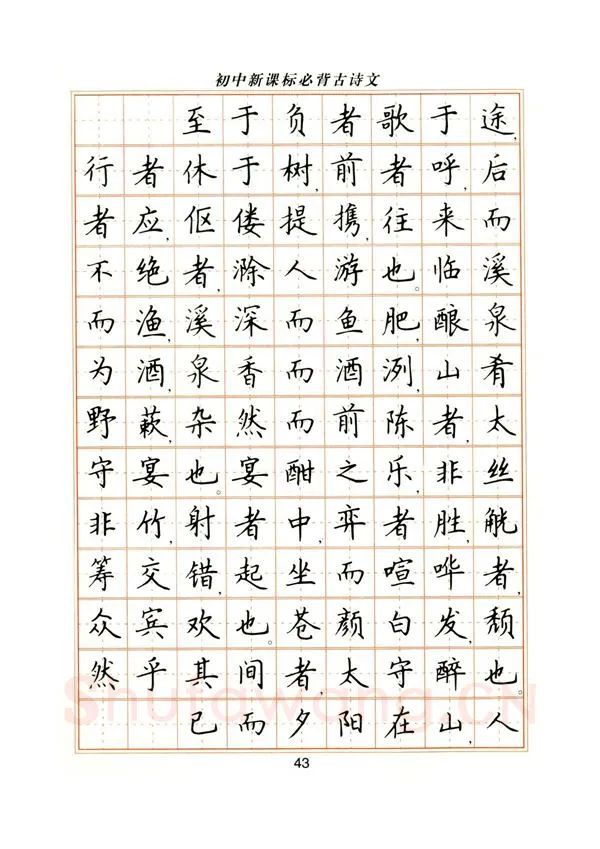 初中新课标必背古诗文
至于负者歌于途，
行者休于树，前者呼，后
者应，伛偻提携，往来而
不绝者，滁人游也。临溪
而渔，溪深而鱼肥，酿泉
为酒，泉香而酒洌，山肴
野蔌，杂然而前陈者，太
守宴也。宴酣之乐，非丝
非竹，射者中，弈者胜，觥
筹交错，起坐而喧哗者，
众宾欢也。苍颜白发，颓
然乎其间者，太守醉也。
已而夕阳在山，人
Shufawang.CN
43